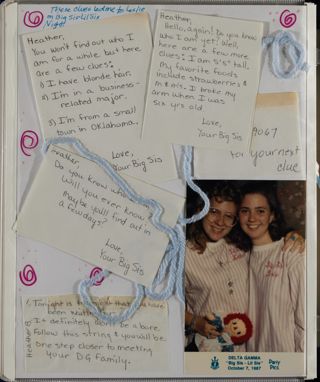 These clues led me to Leslie
m Big Sis-Lil Sis
Night
Heather,
You won't find out who I
am for a while but here
are a few clues:
1) I have blonde hair.
2) I'm in a business-
related major.
3) I'm from a small
town in Oklahoma.
Love,
Your Big Sis
Heather,
Hello, again! Do you know
who I am yet? Well,
here are a few more
clues: I am 5'5" tall.
my favorite foods
include strawberries &
m&m's. I broke my
arm when I was
six yrs old
Love,
Your Big Sis
9067
for your next
clue
Heather,
Do you know who
Will you ever know?
maybe you'll find out in
a few days?
Love,
Your Big Sis
Tonight is
been
It definitely won't be a bore
Follow this string & you'll be
one step closer to meeting
your DG family.
Heather B.
DELTA GAMMA
"Big Sis - Lil Sis"
October 7, 1987
Party
Pics